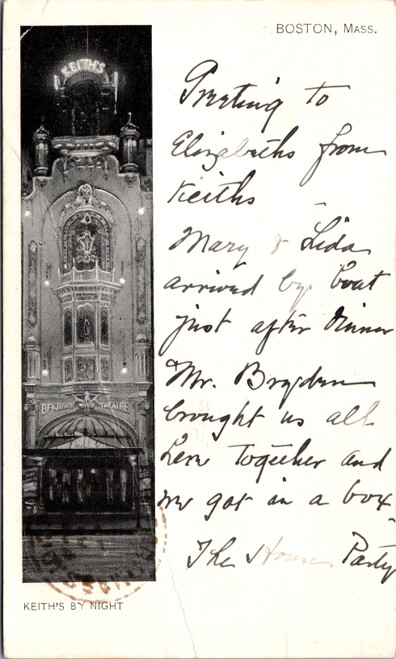 BOSTON, MASS.
KEITH'S
Greeting to
Elizabeths from
Keiths
Mary & Lida
arrived by boat
just after dinner
Mr. Brydun
brought us all
here together and
we got in a box
The House Party
KEITH'S BY NIGHT